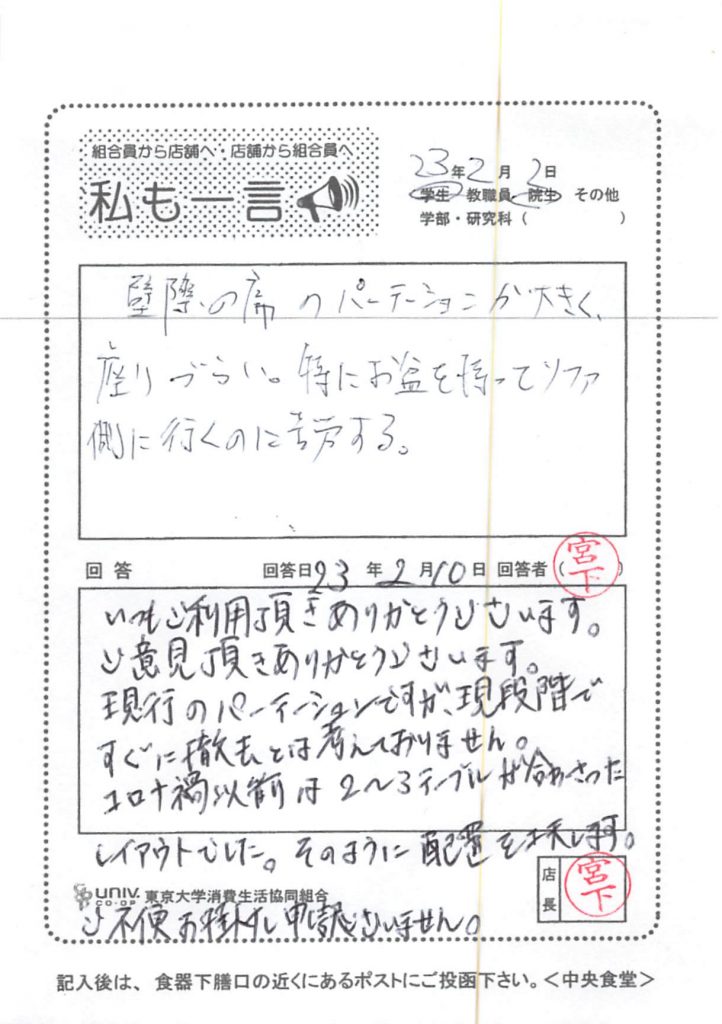 組合員から店舗へ・店舗から組合員へ
私も一言
23年2月2日
学生 教職員 院生 その他
学部・研究科( )
壁際の席のパーテーションが大きく、
座りづらい。特にお盆を持ってソファ
側に行くのに苦労する。
回答 回答日23年2月10日 回答者(宮下)
いつもご利用頂きありがとうございます。
ご意見頂きありがとうございます。
現行のパーテーションですが、現段階で
すぐに撤去とは考えておりません。
コロナ禍以前は2〜3テーブルが合わさった
レイアウトでした。そのように配置を
店長 宮下
UNIV. CO-OP 東京大学消費生活協同組合
ご不便お掛けし申訳ございません。
記入後は、食器下膳口の近くにあるポストにご投函下さい。<中央食堂>